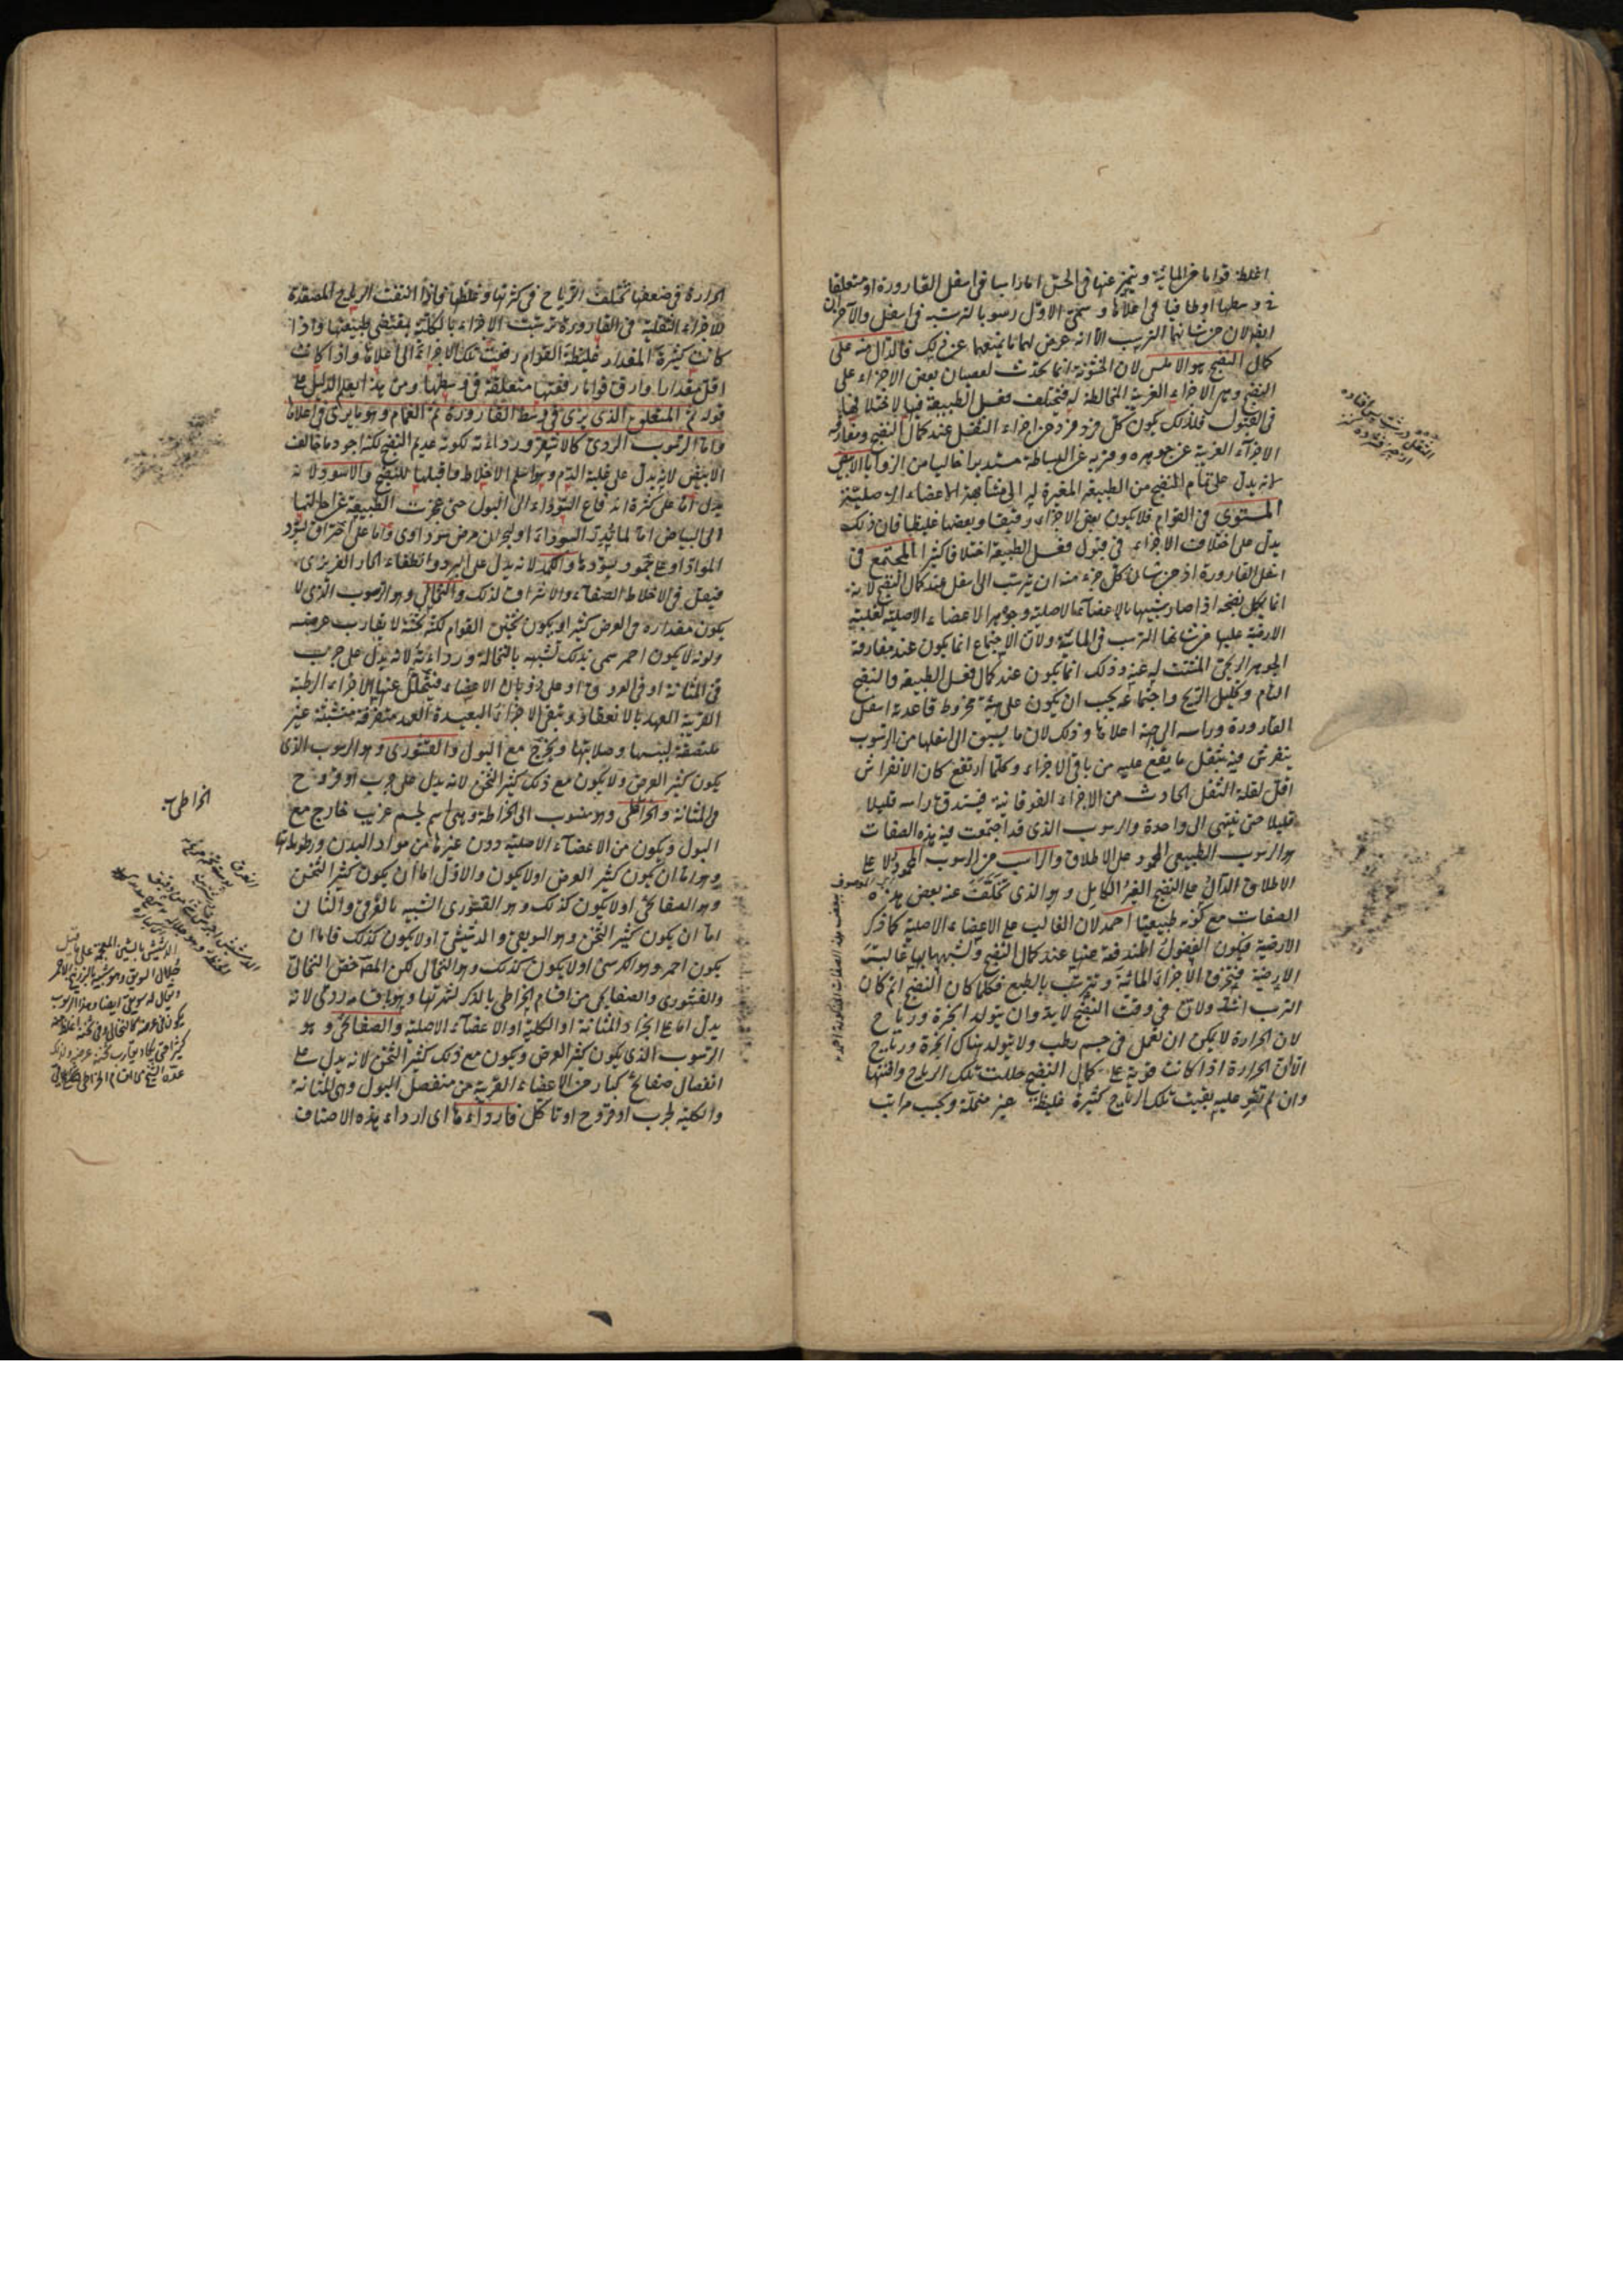 اغلظ قواما من المائية ويتميز عنها فى الحس اما راسبا فى اسفل القارورة او متعلقا
فى وسطها او طافيا فى اعلاها وسمى الاول رسوبا لترسبه فى اسفل والآخران
ايضا لان من شانهما الترسب الا انه عرض لهما ما يمنعهما عن ذلك فالدال منه على
كمال النضج هو الاملس لان الخشونة انما تحدث لعصيان بعض الاجزاء على
النضج وهى الاجزاء الغريبة المخالطة له فتختلف فعل الطبيعة فيها لاختلافها
فى القبول فلذلك يكون كل فرد فرد من اجزاء الثفل عند كمال النضج ومفارقة
الاجزاء الغريبة عن جوهره وقربه عن البساطة مستديرا خاليا من الزوايا الابيض
لانه يدل على تمام النضج من الطبيعة المغيرة له الى مشابهة الاعضاء الاصلية
المستوى فى القوام فلا يكون بعض الاجزاء رقيقا وبعضها غليظا فان ذلك
يدل على اختلاف الاجزاء فى قبول فعل الطبيعة اختلافا كثيرا المجتمع فى
اسفل القارورة اذ من شان كل جزء منه ان يترسب الى اسفل عند كمال النضج لانه
انما يكمل نضجه اذا صار شبيها بالاعضاء الاصلية وجوهر الاعضاء الاصلية لغلبة
الارضية عليها من شانها الترسب فى المائية ولان الاجتماع انما يكون عند مفارقة
الجوهر الريحى المشتت له عنه وذلك انما يكون عند كمال فعل الطبيعة والنضج
التام وتحليل الريح واجتماعه يجب ان يكون على هيئة مخروط قاعدته اسفل
القارورة وراسه الى جهة اعلاها وذلك لان ما يسبق الى اسفلها من الرسوب
ينفرش فيه بثقل ما يقع عليه من باقى الاجزاء وكلما ارتفع كان الانفراش
اقل لقلة الثقل الحادث من الاجزاء الفوقانية فيستدق راسه قليلا
قليلا حتى ينتهى الى واحدة والرسوب الذى قد اجتمعت فيه هذه الصفات
هو الرسوب الطبيعى المحمود على الاطلاق والراسب من الرسوب المحمود لا على
الاطلاق الدال على النضج الغير الكامل وهو الذى تخلفت عنه بعض هذه
الصفات مع كونه طبيعيا احمد لان الغالب على الاعضاء الاصلية كما ذكر
الارضية فيكون الفضول المندفعة عنها عند كمال النضج وتشبهها بها غالبة
الارضية فتخرق الاجزاء المائية وتترسب بالطبع فكلما كان النضج اتم كان
الترسب اشد ولان فى وقت النضج لابد وان يتولد ابخرة ورياح
لان الحرارة لا يمكن ان تعمل فى جسم رطب ولا يتولد هناك ابخرة ورياح
الا ان الحرارة اذا كانت قوية على كمال النضج حللت تلك الرياح وافنتها
وان لم تقو عليه بقيت تلك الرياح كثيرة غليظة غير متحللة وبحسب مراتب
الحرارة فى ضعفها تختلف الرياح فى كثرتها وغلظها فاذا انتفت الرياح المصعدة
للاجزاء الثفلية فى القارورة ترسبت الاجزاء بالكلية بمقتضى طبيعتها واذا
كانت كثيرة المقدار غليظة القوام رفعت تلك الاجزاء الى اعلاها واذا كانت
اقل مقدارا وارق قواما رفعتها متعلقة فى وسطها ومن هذا يعلم الدليل على
قوله ثم المتعلق الذى يرى فى وسط القارورة ثم الغمام وهو ما يرى فى اعلاها
واما الرسوب الردى كالاشقر ورداءته لكونه عديم النضج لكنه اجود ما خالف
الابيض لانه يدل على غلبة الدم وهو اسلم الاخلاط واقبلها للنضج والاسود لانه
يدل اما على كثرة اندفاع السوداء الى البول حتى عجزت الطبيعة عن احالتها
الى البياض اما لمائدة السوداء او لبحران مرض سوداوى واما على احتراق يسود
المواد او على جمود يسودها والكمد لانه يدل على البرد وانطفاء الحار الغريزى
فيفعل فى الاخلاط الصفاء والاشراق لذلك والنخالى وهو الرسوب الذى لا
يكون مقداره فى العرض كثيرا ويكون ثخين القوام لكنه ثخنه لا يقارب عرضه
ولونه لا يكون احمر سمى بذلك لشبهه بالنخالة ورداءته لانه يدل على جرب
فى المثانة او فى العروق او على ذوبان الاعضاء فيتحلل عنها الاجزاء الرطبة
القريبة العهد بالانعقاد وتبقى الاجزاء البعيدة العهد متفرقة متشتتة غير
ملتصقة ليبسها وصلابتها وتخرج مع البول والقشورى وهو الرسوب الذى
يكون كثير العرض ولا يكون مع ذلك كثير الثخن لانه يدل على جرب او قروح
فى المثانة والخراطى وهو منسوب الى الخراطة وهى اسم لجسم غريب خارج مع
البول ويكون من الاعضاء الاصلية دون غيرها من مواد البدن ورطوباتها
وهو اما ان يكون كثير العرض او لا يكون والاول اما ان يكون كثير الثخن
وهو الصفائحى او لا يكون كذلك وهو القشورى الشبيه بالغرقئ والثانى
اما ان يكون كثير الثخن وهو السويقى والدشيشى او لا يكون كذلك فاما ان
يكون احمر وهو الكرسنى او لا يكون كذلك وهو النخالى لكن المص خص النخالى
والقشورى والصفائحى من اقسام الخراطى بالذكر لشهرتها وهو باقسامه ردى لانه
يدل اما على انجراد المثانة او الكلية او الاعضاء الاصلية والصفائحى وهو
الرسوب الذى يكون كثير العرض ويكون مع ذلك كثير الثخن لانه يدل على
انفصال صفائح كبار من الاعضاء القريبة من منفصل البول وهى المثانة
والكلية لجرب او قروح او تاكل فارداءها اى ارداء هذه الاصناف
الخراطى